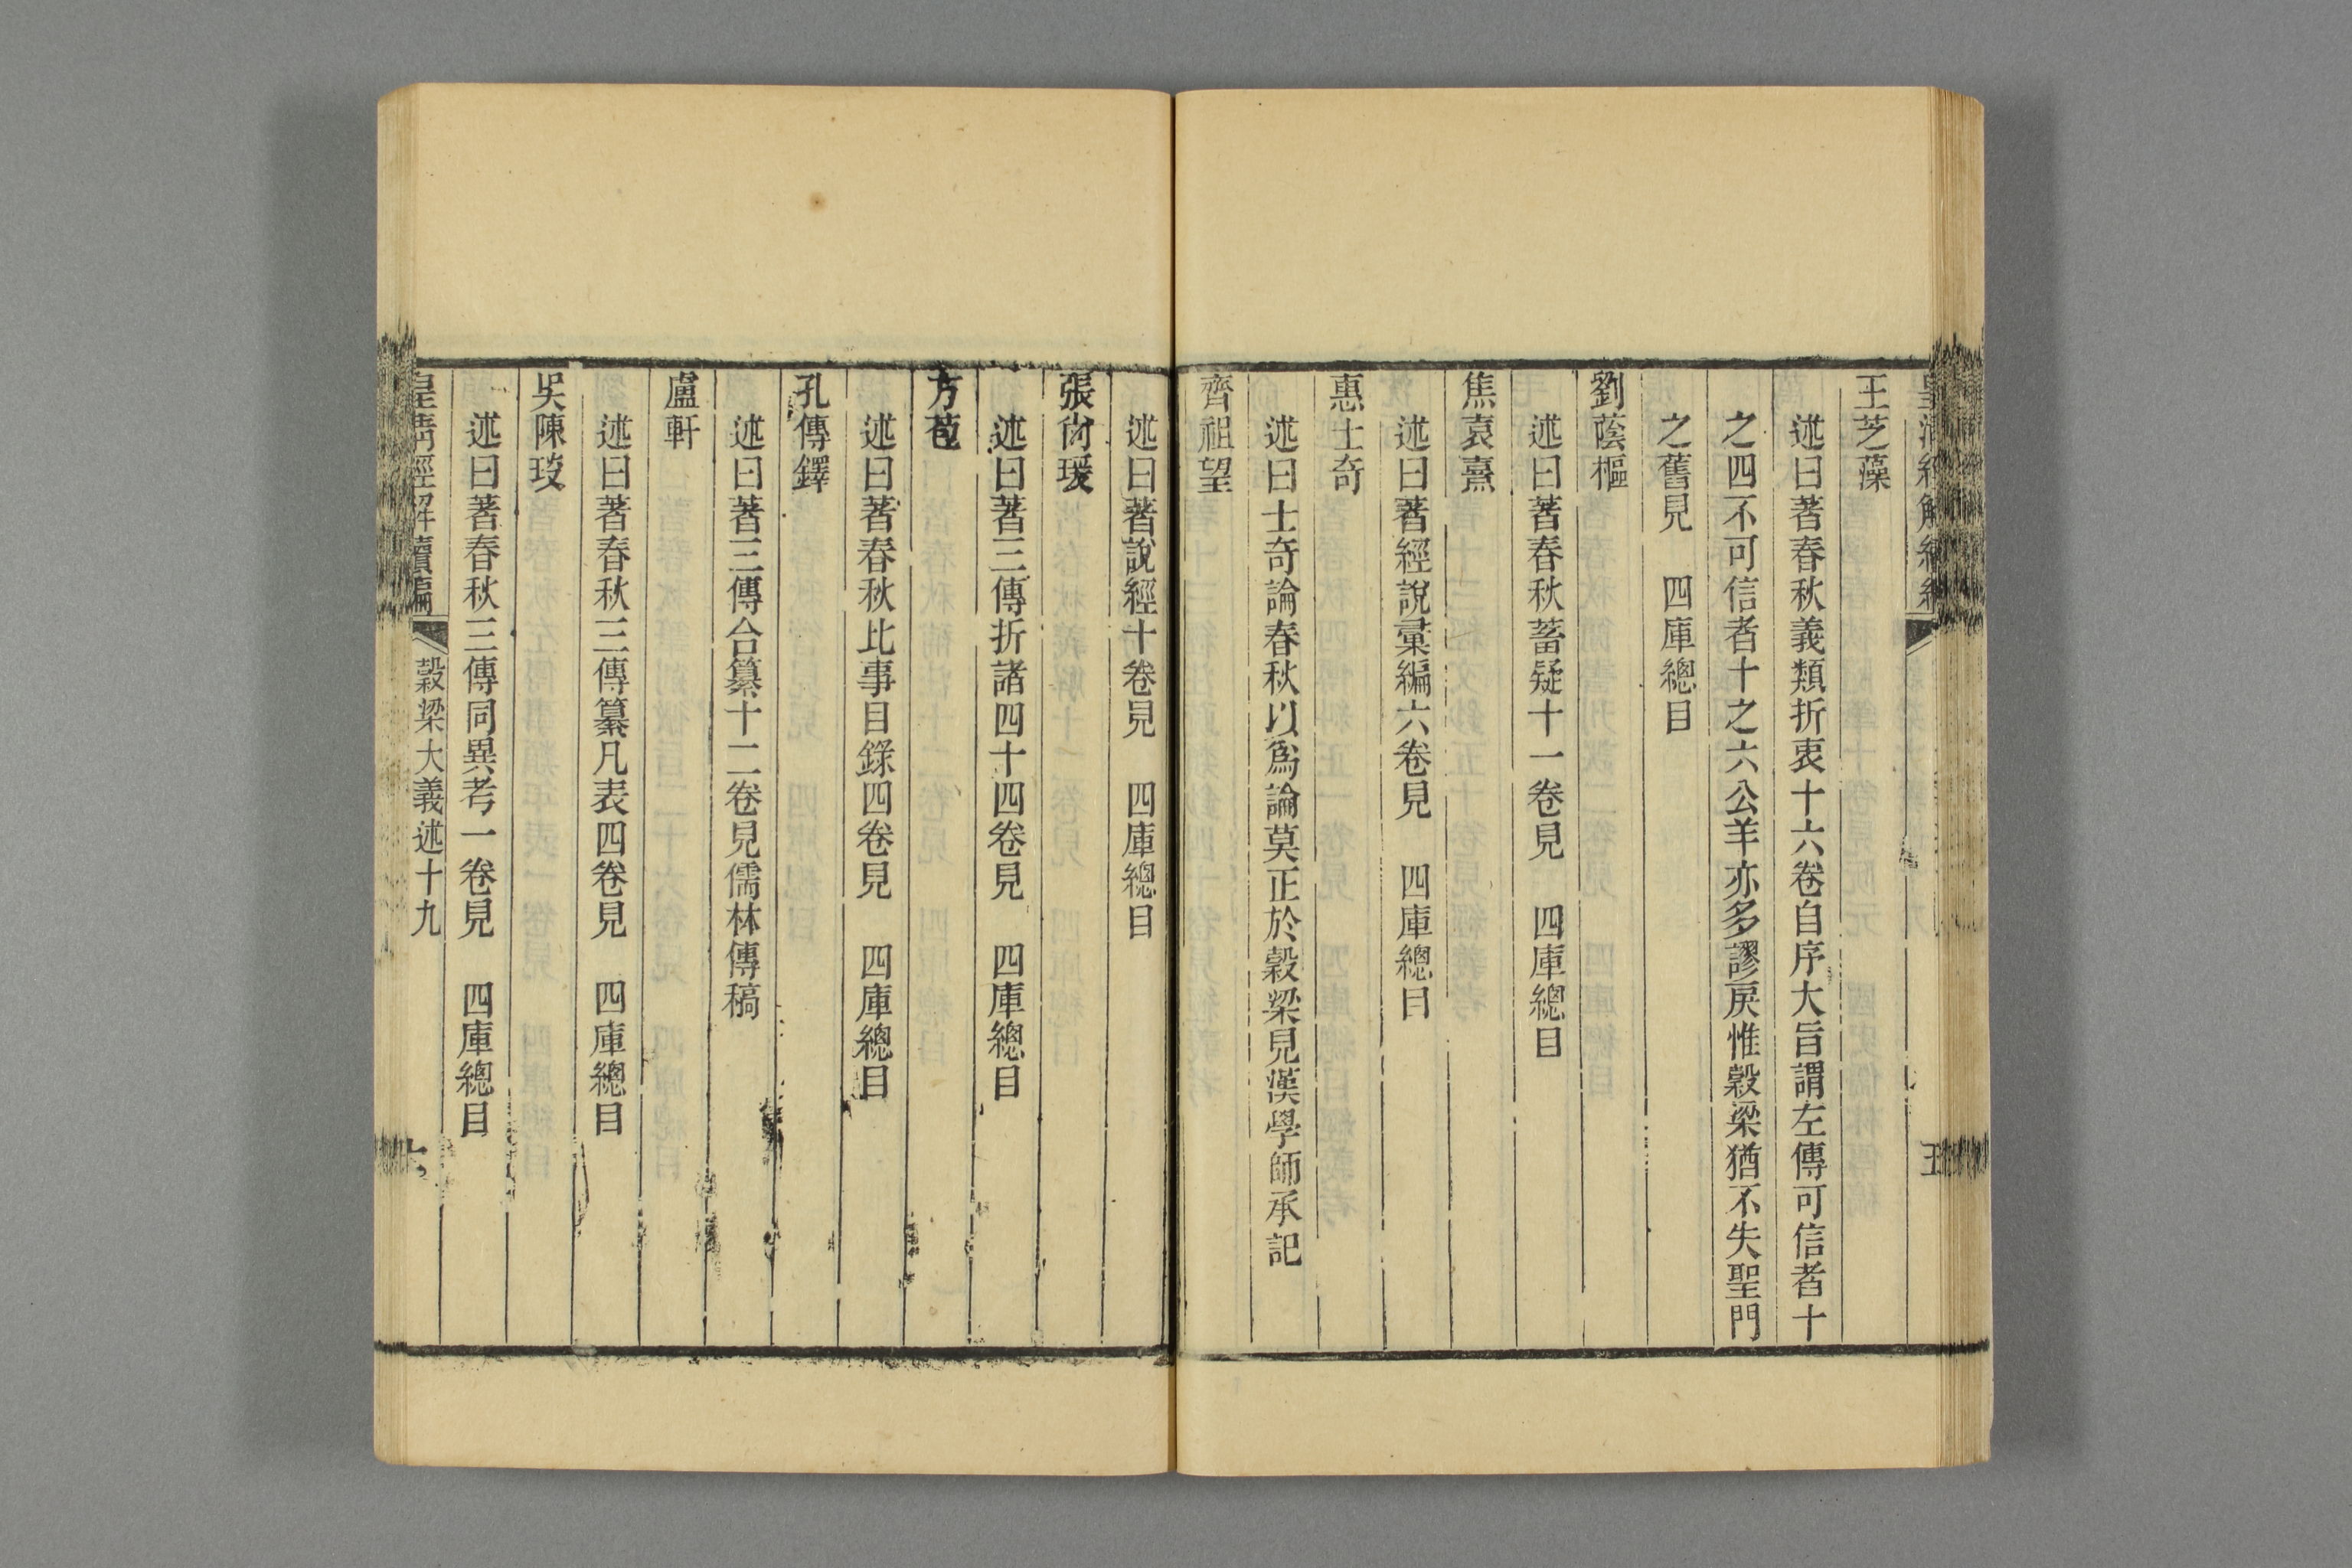 王芝藻
述曰著春秋義類折衷十六卷自序大旨謂左傳可信者十
之四不可信者十之六公羊亦多謬戾惟穀梁猶不失聖門
之舊見　四庫總目
劉蔭樞
述曰著春秋蓄疑十一卷見　四庫總目
焦袁熹
述曰著經說彙編六卷見　四庫總目
惠士奇
述曰士奇論春秋以爲論莫正於穀梁見漢學師承記
齊祖望
述曰著說經十卷見　四庫總目
張尚瑗
述曰著三傳折諸四十四卷見　四庫總目
方苞
述曰著春秋比事目錄四卷見　四庫總目
孔傳鐸
述曰著三傳合纂十二卷見儒林傳稿
盧軒
述曰著春秋三傳纂凡表四卷見　四庫總目
吳陳琰
述曰著春秋三傳同異考一卷見　四庫總目
皇清經解續編
穀梁大義述十九